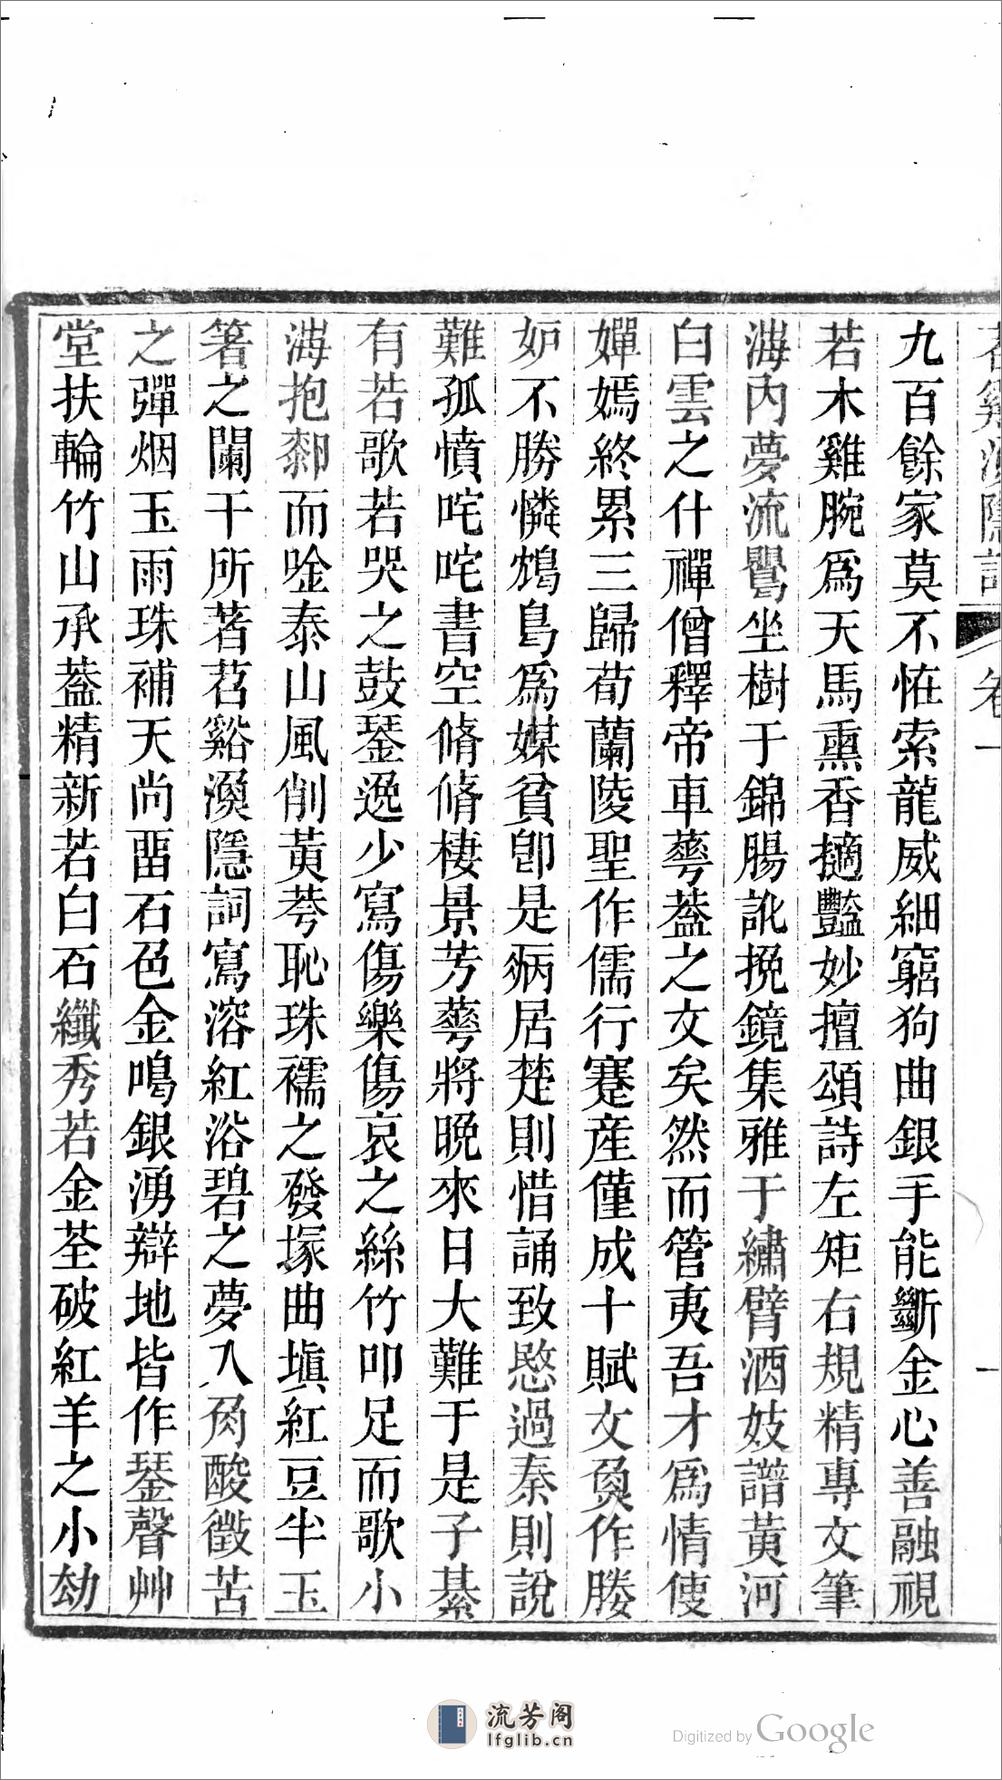 苕谿漁隱詞 卷一 一
九百餘家莫不恠索龍威細窮狗曲銀手能斷金心善融視
若木雞腕爲天馬熏香擿豔妙擅頌詩左矩右規精專文筆
海內夢流鸎坐樹于錦腸訛挽鏡集雅于繡臂酒妓譜黃河
白雲之什禪僧釋帝車蕚葢之文矣然而管夷吾才爲情使
嬋嫣終累三歸荀蘭陵聖作儒行蹇産僅成十賦文奐作媵
妒不勝憐鴆鳥爲媒貧卽是病居楚則惜誦致愍過秦則說
難孤憤咤咤書空脩脩棲景芳蕚將晚來日大難于是子綦
有若歌若哭之鼓琴逸少寫傷樂傷哀之絲竹叩足而歌小
海抱郲而唫泰山風削黃荂恥珠襦之發塚曲塡紅豆半玉
箸之闌干所著苕谿漁隱詞寫溶紅浴碧之夢入角酸徵苦
之彈烟玉雨珠補天尚畱石色金鳴銀湧辯地皆作琴聲艸
堂扶輪竹山承葢精新若白石纖秀若金荃破紅羊之小劫
流芳阁
lfglib.cn
Digitized by Google